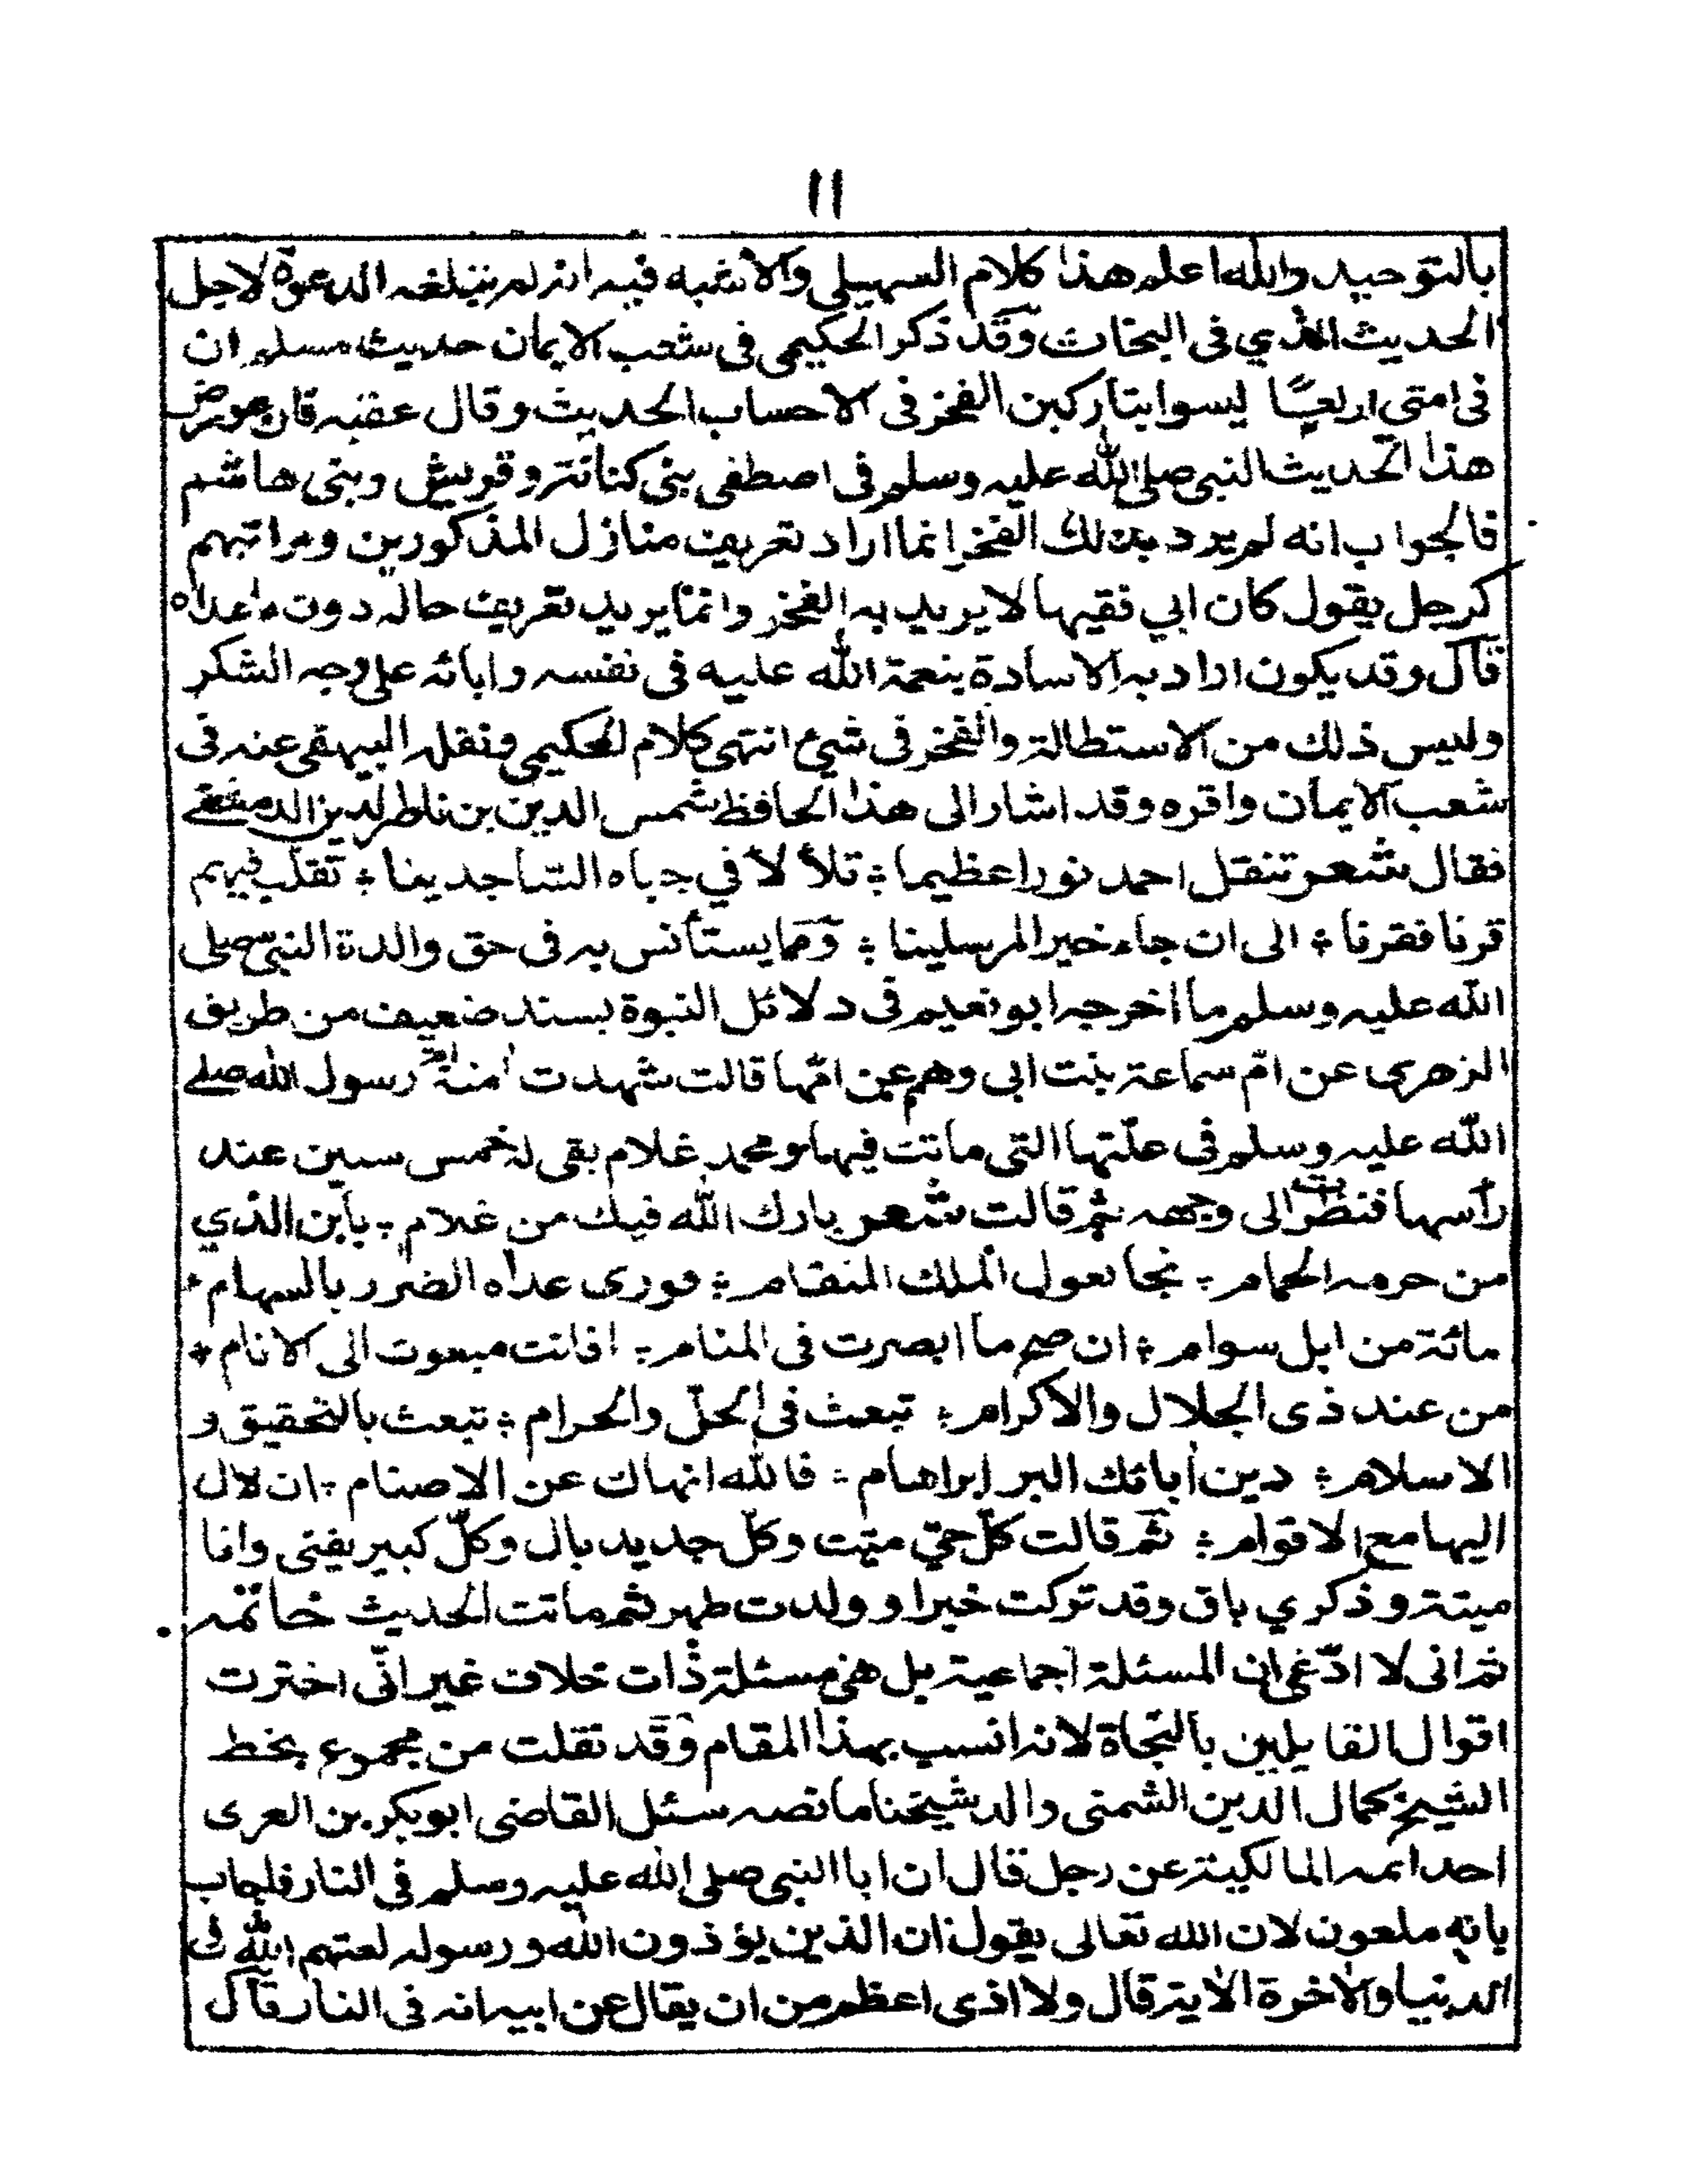 ١١
بالتوحيد والله اعلم هذا كلام السهيلي والاشبه فيه انه لم يتبلغه الدعوة لاجل
الحديث الذي فى البخات وقد ذكر الحكيمي فى شعب الايمان حديث مسلم ان
فى امتى اربعا ليسوا بتاركين الفخر فى الاحساب الحديث وقال عقبه فان عورض
هذا الحديث النبى صلى الله عليه وسلم فى اصطفى بنى كنانة وقريش وبنى هاشم
فالجواب انه لم يرد بذلك الفخر انما اراد تعريف منازل المذكورين ومراتبهم
كرجل يقول كان ابي فقيها لا يريد به الفخر وانما يريد تعريف حاله دون ما عداه
قال وقد يكون اراد به الاسادة بنعمة الله عليه فى نفسه وابائه على وجه الشكر
وليس ذلك من الاستطالة والفخر فى شئ انتهى كلام الحكيمي ونقله البيهقى عنه فى
شعب الايمان واقره وقد اشار الى هذا الحافظ شمس الدين بن ناطر لدين الدمشقے
فقال شعر تنقل احمد نورا عظيما ؛ تلألأ في جباه الساجدينا ؛ تقلب فيهم
قرنا فقرنا ؛ الى ان جاء خير المرسلينا ؛ ومما يستأنس به فى حق والدة النبى صلى
الله عليه وسلم ما اخرجه ابو نعيم فى دلائل النبوة بسند ضعيف من طريق
الزهرى عن ام سماعة بنت ابى وهم عن امها قالت شهدت امنة ام رسول الله صلے
الله عليه وسلم فى علتها التى ماتت فيها ومحمد غلام بقى له خمس سنين عند
رأسها فنظرت الى وجهه ثم قالت شعر بارك الله فيك من غلام ؛ يا بن الذي
من حرمه الحمام ؛ نجا بعول الملك المنقام ؛ فورى عداه الضرر بالسهام ؛
مائة من ابل سوام ؛ ان صح ما ابصرت فى المنام ؛ افانت مبعوت الى الانام ؛
من عند ذى الجلال والاكرام ؛ تبعث فى الحل والحرام ؛ تبعث بالتحقيق و
الاسلام ؛ دين أبائك البر ابراهام ؛ فالله انهاك عن الاصنام ؛ ان لال
اليها مع الاقوام ؛ ثم قالت كل حي ميت وكل جديد بال وكل كبير يفتى وانا
ميتة وذكري باق وقد تركت خيرا و ولدت طهر ثم ماتت الحديث خاتمه
ثم انى لا ادعى ان المسئلة اجماعية بل هى مسئلة ذات خلاف غير انى اخترت
اقوال القايلين بالنجاة لانه انسب بهذا المقام وقد نقلت من مجموع بخط
الشيخ كمال الدين الشمنى والد شيخنا ما نصه سئل القاضى ابو بكر بن العرى
احد ائمه المالكية عن رجل قال ان ابا النبى صلى الله عليه وسلم فى النار فاجاب
بانه ملعون لان الله تعالى يقول ان الذين يؤذون الله ورسوله لعتهم الله فى
الدنيا والاخرة الاية قال ولا اذى اعظم من ان يقال عن ابيه انه فى النار قال